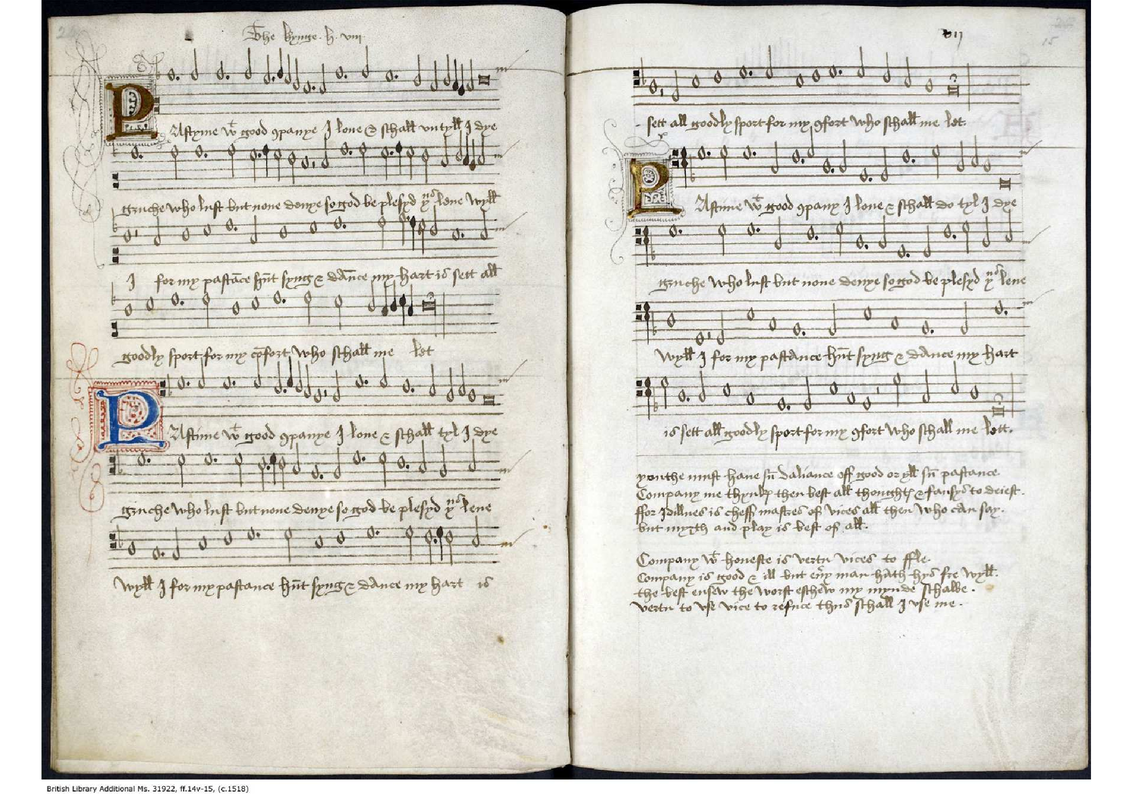 The kynge .h. viij
PAstyme wt good 9panye I loue & schall vntyll I dye
gruche who lust but none denye so god be plesyd yus leue wyll
I for my pastāce hūt syng & dāne my hart is sett all
goodly sport for my cōfort who schall me let
PAstime wt good 9panye I loue & schall tyl I dye
gruche who lust but none denye so god be plesyd yus leue
wyll I for my pastance hūt syng & dance my hart is
15
sett all goodly sport for my 9fort who schall me let.
PAstime wt good 9pany I loue & schall do tyl I dye
gruche who lust but none denye so god be plesyd yus leue
wyll I for my pastance hūt syng & dance my hart
is sett all goodly sport for my 9fort who schall me lett.
youthe must haue sū daliance off good or yll sū pastance.
Company me thynkꝭ then best all thoughtꝭ & fansys to deiest.
ffor Idillnes is cheff mastres of vices all then who can say.
but myrth and play is best of all.
Company wt honeste is vertu vices to ffle.
Company is good & ill but eūy man hath hys fre wyll.
the best ensew the worst eschew my mynde schalbe.
vertu to vse vice to refuce thus schall I vse me.
British Library Additional Ms. 31922, ff.14v-15, (c.1518)